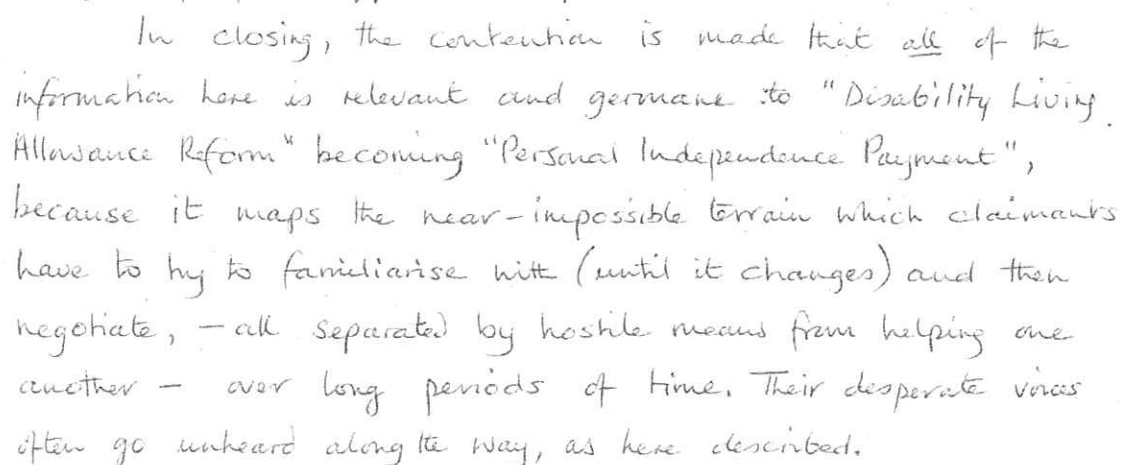 In closing, the contention is made that all of the
information here is relevant and germane to "Disability Living
Allowance Reform" becoming "Personal Independence Payment",
because it maps the near-impossible terrain which claimants
have to try to familiarise with (until it changes) and then
negotiate, - all separated by hostile means from helping one
another - over long periods of time. Their desperate voices
often go unheard along the way, as here described.